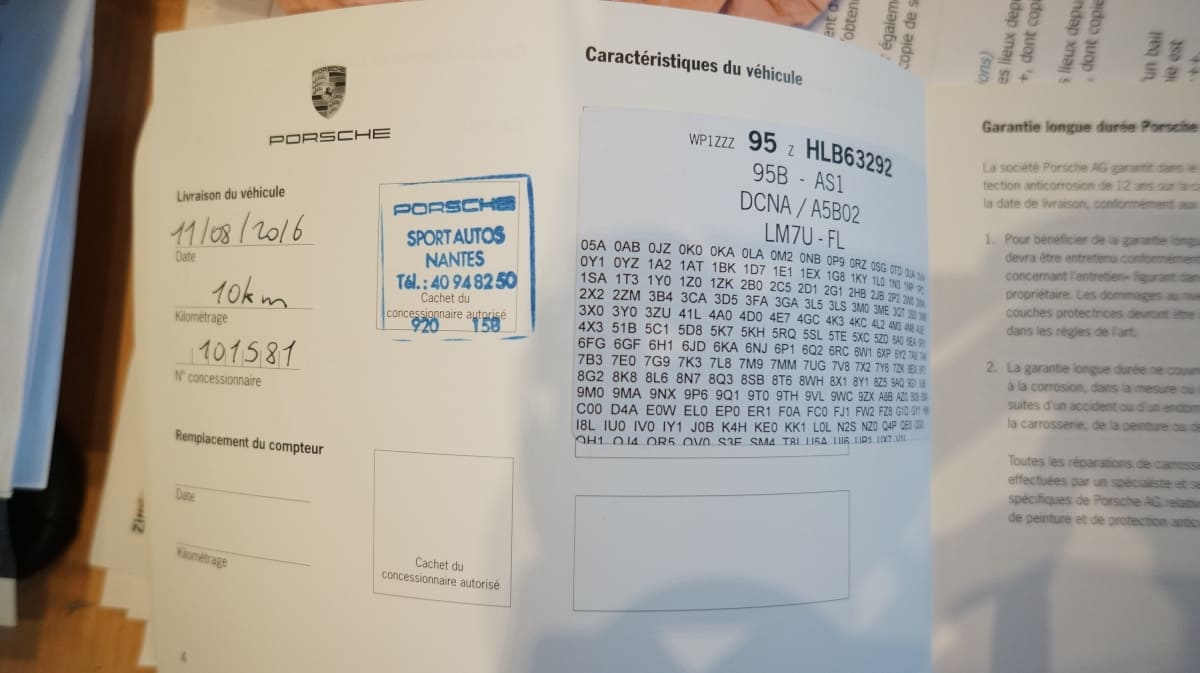 PORSCHE
PORSCHE
Livraison du véhicule
11/08/2016
Date
10km
Kilométrage
101581
N° concessionnaire
PORSCHE
SPORT AUTOS
NANTES
Tél.: 40 94 82 50
Cachet du
concessionnaire autorisé
920 158
Remplacement du compteur
Date
Kilométrage
Cachet du
concessionnaire autorisé
4
Caractéristiques du véhicule
WP1ZZZ 95 Z HLB63292
95B - AS1
DCNA / A5B02
LM7U - FL
05A 0AB 0JZ 0K0 0KA 0LA 0M2 0NB 0P9 0RZ 0SG 0TD
0Y1 0YZ 1A2 1AT 1BK 1D7 1E1 1EX 1G8 1KY 1L0 1N3
1SA 1T3 1Y0 1Z0 1ZK 2B0 2C5 2D1 2G1 2HB 2JB 2P2
2X2 2ZM 3B4 3CA 3D5 3FA 3GA 3L5 3LS 3M0 3ME 3QT
3X0 3Y0 3ZU 41L 4A0 4D0 4E7 4GC 4K3 4KC 4L2 4M0
4X3 51B 5C1 5D8 5K7 5KH 5RQ 5SL 5TE 5XC 5ZD
6FG 6GF 6H1 6JD 6KA 6NJ 6P1 6Q2 6RC 6W1 6XP 6Y2
7B3 7E0 7G9 7K3 7L8 7M9 7MM 7UG 7V8 7X2 7Y6 7ZK
8G2 8K8 8L6 8N7 8Q3 8SB 8T6 8WH 8X1 8Y1 8Z5 9AQ
9M0 9MA 9NX 9P6 9Q1 9T0 9TH 9VL 9WC 9ZX A8B AZ0
C00 D4A E0W EL0 EP0 ER1 F0A FC0 FJ1 FW2 FZ8
I8L IU0 IV0 IY1 J0B K4H KE0 KK1 L0L N2S NZ0 Q4P QE0
QH1 QJ4 QR5 QV0 S3F SM4 T8L U5A
Garantie longue durée Porsche
La société Porsche AG garantit dans le
tection anticorrosion de 12 ans sur la
la date de livraison, conformément aux
1. Pour bénéficier de la garantie
devra être entretenu conformément
concernant l'entretien figurant
propriétaire. Les dommages
couches protectrices devront être
dans les règles de l'art.
2. La garantie longue durée ne
à la corrosion, dans la mesure où
suites d'un accident ou d'un
la carrosserie, de la peinture ou
Toutes les réparations de
effectuées par un spécialiste et
spécifiques de Porsche AG
de peinture et de protection